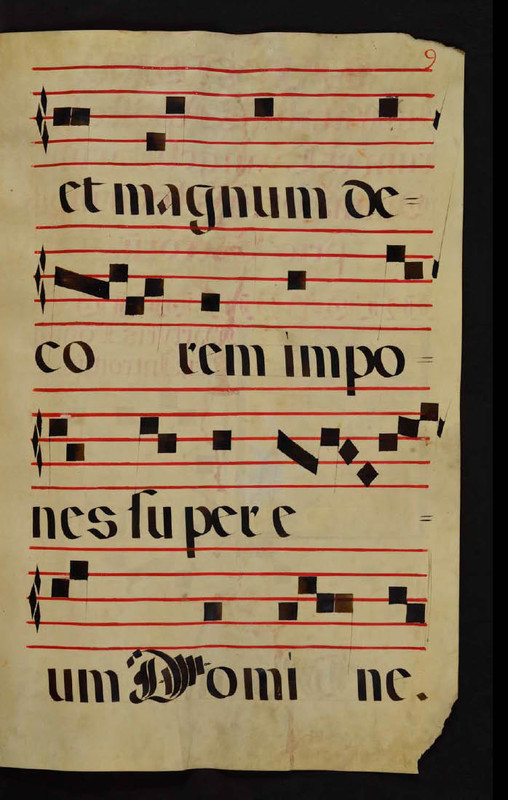 9
et magnum de=
co rem impo=
nes super e=
um Domi ne.